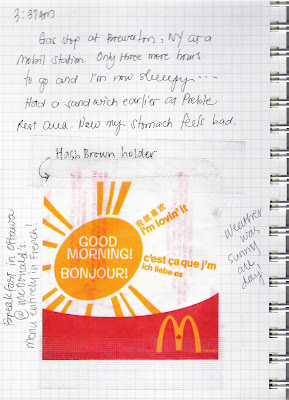 3:37AM
Gas stop at Brewerton, NY at a
mobil station. Only three more hours
to go and I'm now sleeepy...
Had a sandwich earlier at Preble
Rest area. Now my stomach feels bad.
Hash Brown holder
我就喜欢
i'm lovin' it
GOOD
MORNING!
BONJOUR!
c'est ça que j'm
ich liebe es
Breakfast in Ottawa
@ McDonald's
Menu entirely in French!
Weather
was
sunny
all
day